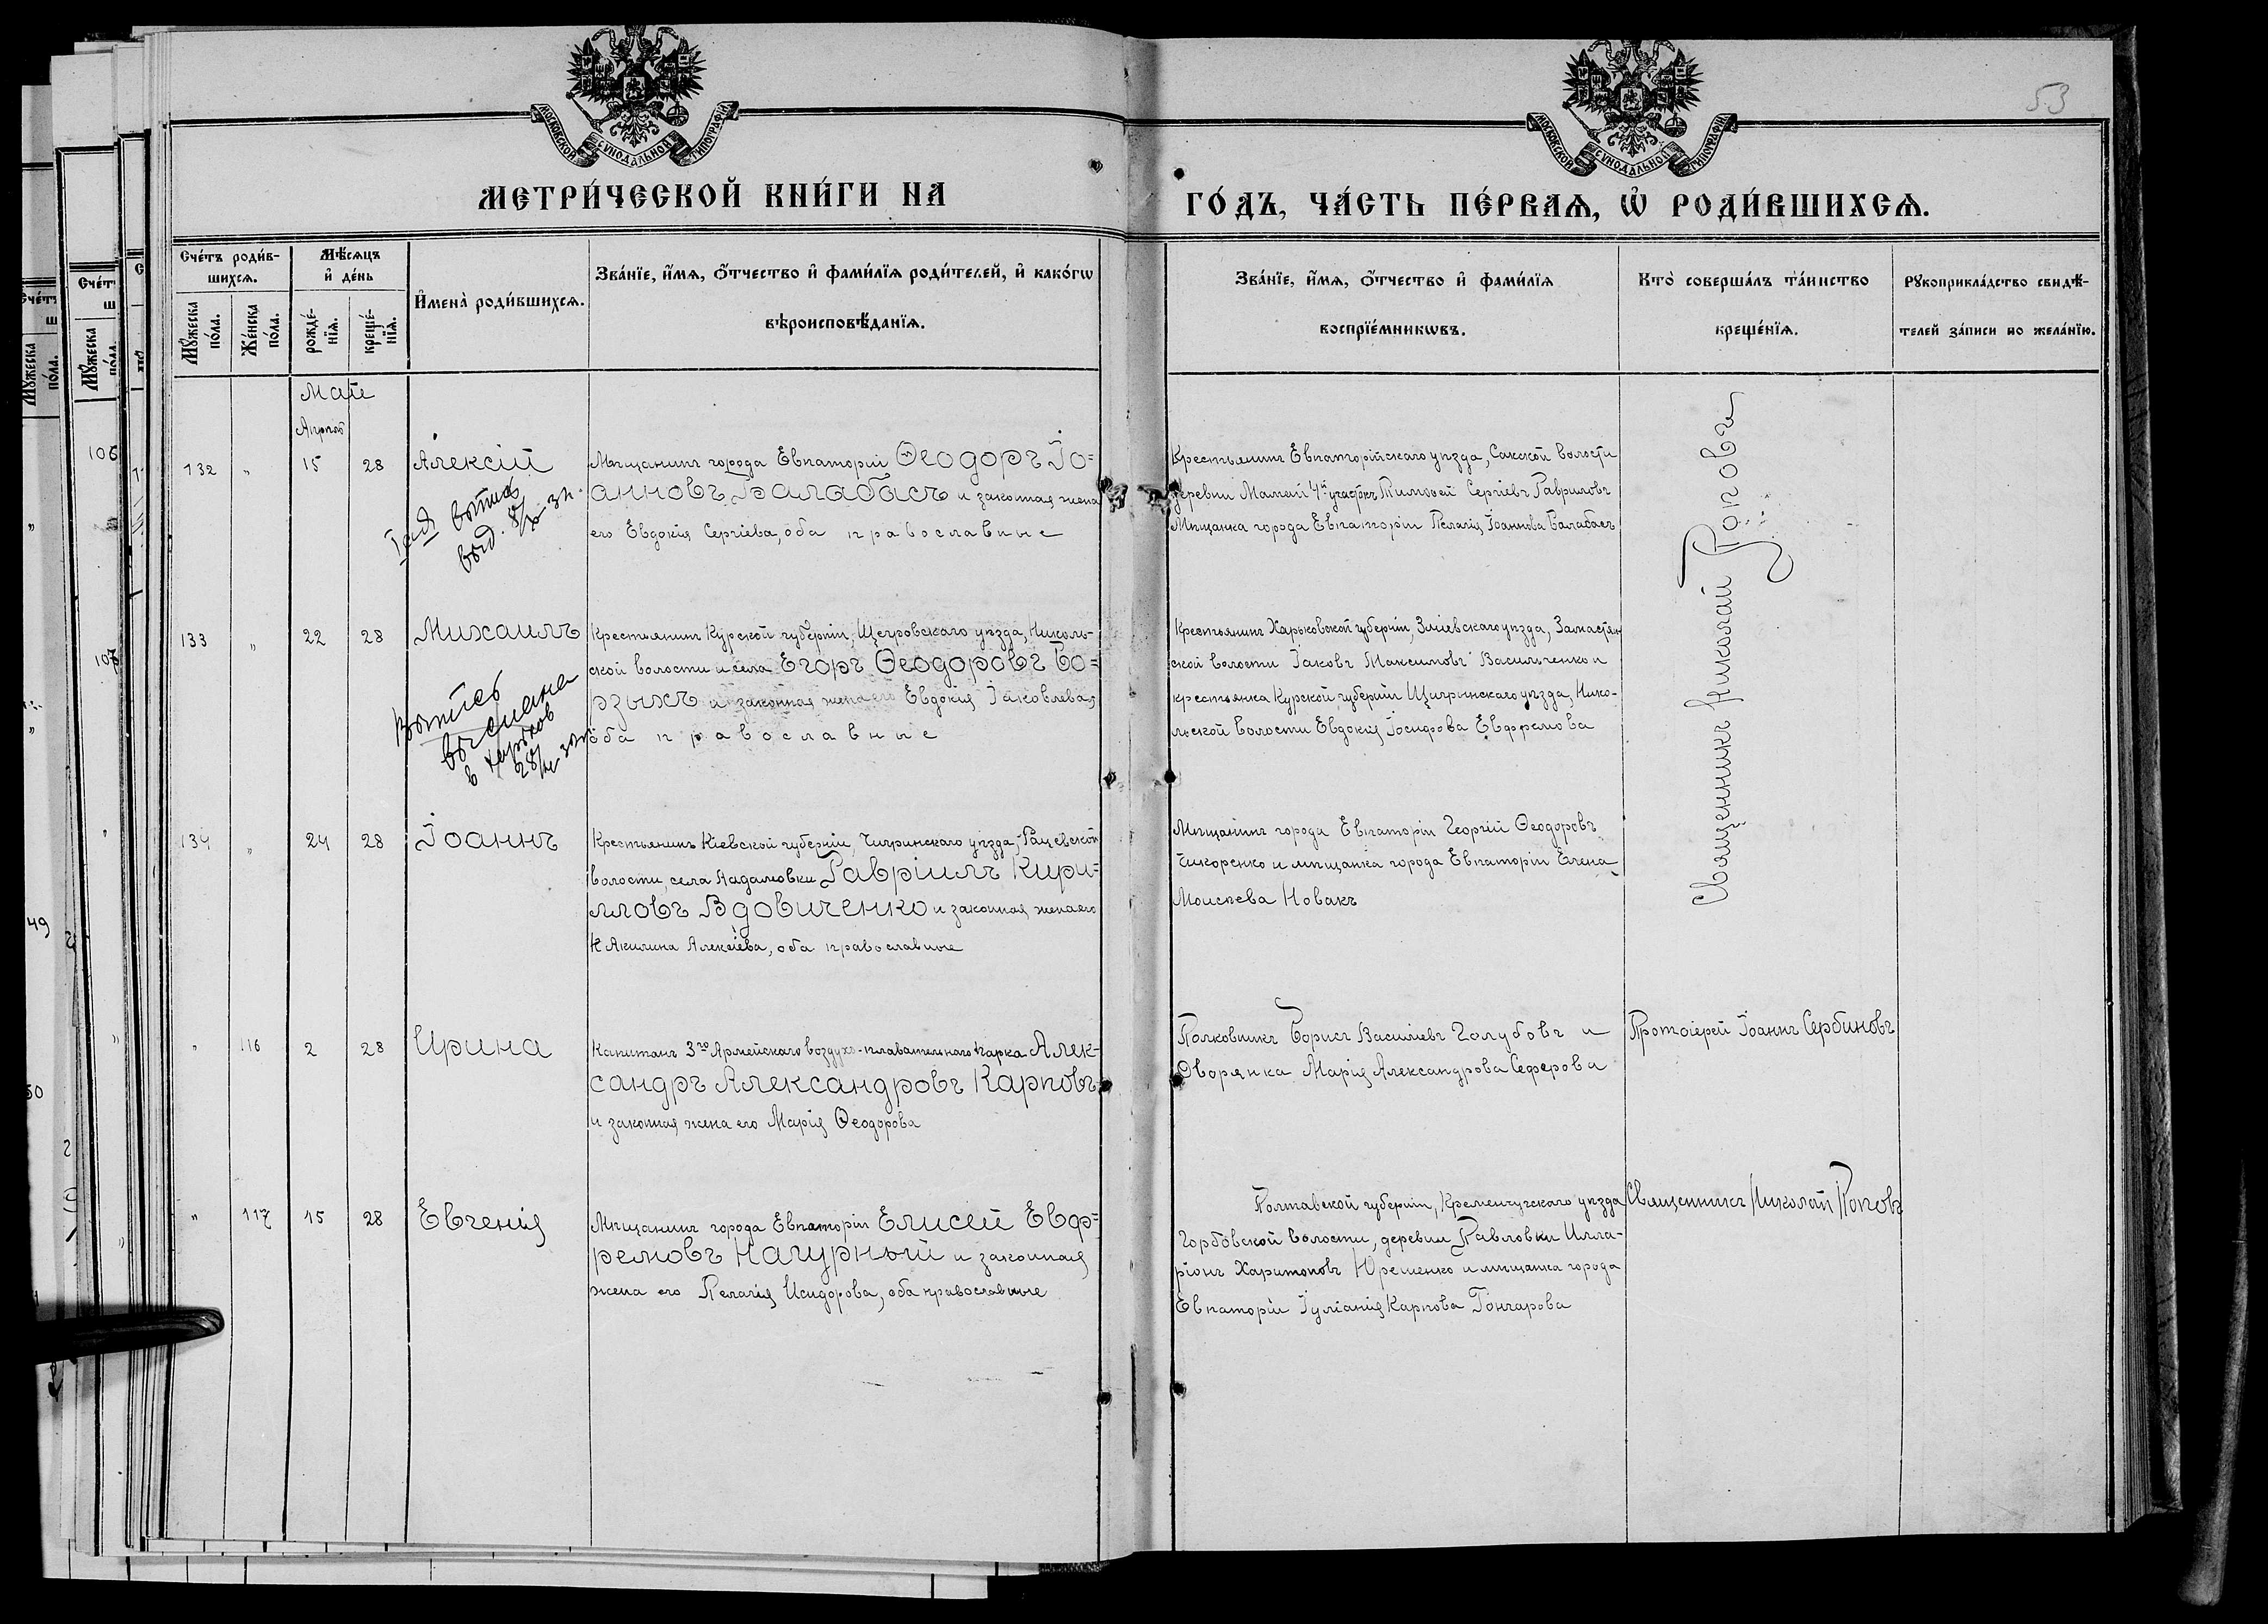 МОСКОВСКОЙ СѴНОДАЛЬНОЙ ТИПОГРАФІИ
МОСКОВСКОЙ СѴНОДАЛЬНОЙ ТИПОГРАФІИ
53
МЕТРИ́ЧЕСКОЙ КНИ́ГИ НА
ГО́ДЪ, ЧА́СТЬ ПЕ́РВАѦ, Ѡ҆ РОДИ́ВШИХСѦ.
Сче́тъ роди́в-
шихсѧ.
Мꙋ́жеска
по́ла.
Же́нска
по́ла.
Мѣ́сѧцъ
и҆ де́нь
рожде́-
нїѧ.
креще́-
нїѧ.
И҆мена̀ роди́вшихсѧ.
Зва́нїе, и҆́мѧ, ѻ҆́тчество и҆ фами́лїѧ роди́телей, и҆ како́гѡ
вѣроисповѣ́данїѧ.
Зва́нїе, и҆́мѧ, ѻ҆́тчество и҆ фами́лїѧ
воспрїе́мникѡвъ.
Кто̀ соверша́лъ та́инство
креще́нїѧ.
Рꙋкоприкла́дство свидѣ́-
телей за́писи по жела́нїю.
Май
Апрель
132 „ 15 28 Алексій
Мѣщанинъ города Евпаторіи Ѳеодоръ Іо=
анновъ Балабасъ и законая жена
его Евдокія Сергіева, оба православные
Крестьянинъ Евпаторійскаго уѣзда, Сакской волости
деревни Мамай 4й участокъ Тимоѳей Сергіевъ Гавриловъ
Мѣщанка города Евпаторіи Пелагія Іоаннова Балабасъ
Священникъ Николай Поповъ
133 „ 22 28 Михаилъ
выпись
выслана
в Харьков
Крестьянинъ Курской губерніи, Щегровскаго уѣзда, Николь-
ской волости и села Егоръ Ѳеодоровъ Бо=
рзыхъ и законная жена его Евдокія Іаковлева,
оба православные
Крестьянинъ Харьковской губерніи, Зміевскаго уѣзда, Замостян
ской волости Іаковъ Максимовъ Васильченко и
крестьянка Курской губерніи Щигринскаго уѣзда, Нико-
льской волости Евдокія Іосифова Евфремова
134 „ 24 28 Іоаннъ
Крестьянинъ Кіевской губерніи, Чигринскаго уѣзда, Рацевской
волости, села Аадамовки Гавріилъ Кири-
лловъ Вдовиченко и законная жена его
Акилина Алексіева, оба православные
Мѣщанинъ города Евпаторіи Георгій Ѳеодоровъ
Чикоренко и мѣщанка города Евпаторіи Елена
Моисѣева Новакъ
„ 116 2 28 Ирина
Капитанъ 3го Армейскаго воздухо-плавательнаго парка Алек-
сандръ Александровъ Карповъ
и законная жена его Марія Ѳеодорова
Полковникъ Борисъ Василіевъ Голубовъ и
Дворянка Марія Александрова Сеферова
Протоіерей Іоаннъ Сербиновъ
„ 117 15 28 Евгенія
Мѣщанинъ города Евпаторіи Елисей Евф-
ремовъ Нагурный и законная
жена его Пелагія Исидорова, оба православные
Полтавской губерніи, Кременчугскаго уѣзда
Горбовской волости, деревни Павловки Илла-
ріонъ Харитоновъ Юрешенко и мѣщанка города
Евпаторіи Іуліанія Карпова Гончарова
Священникъ Николай Поповъ